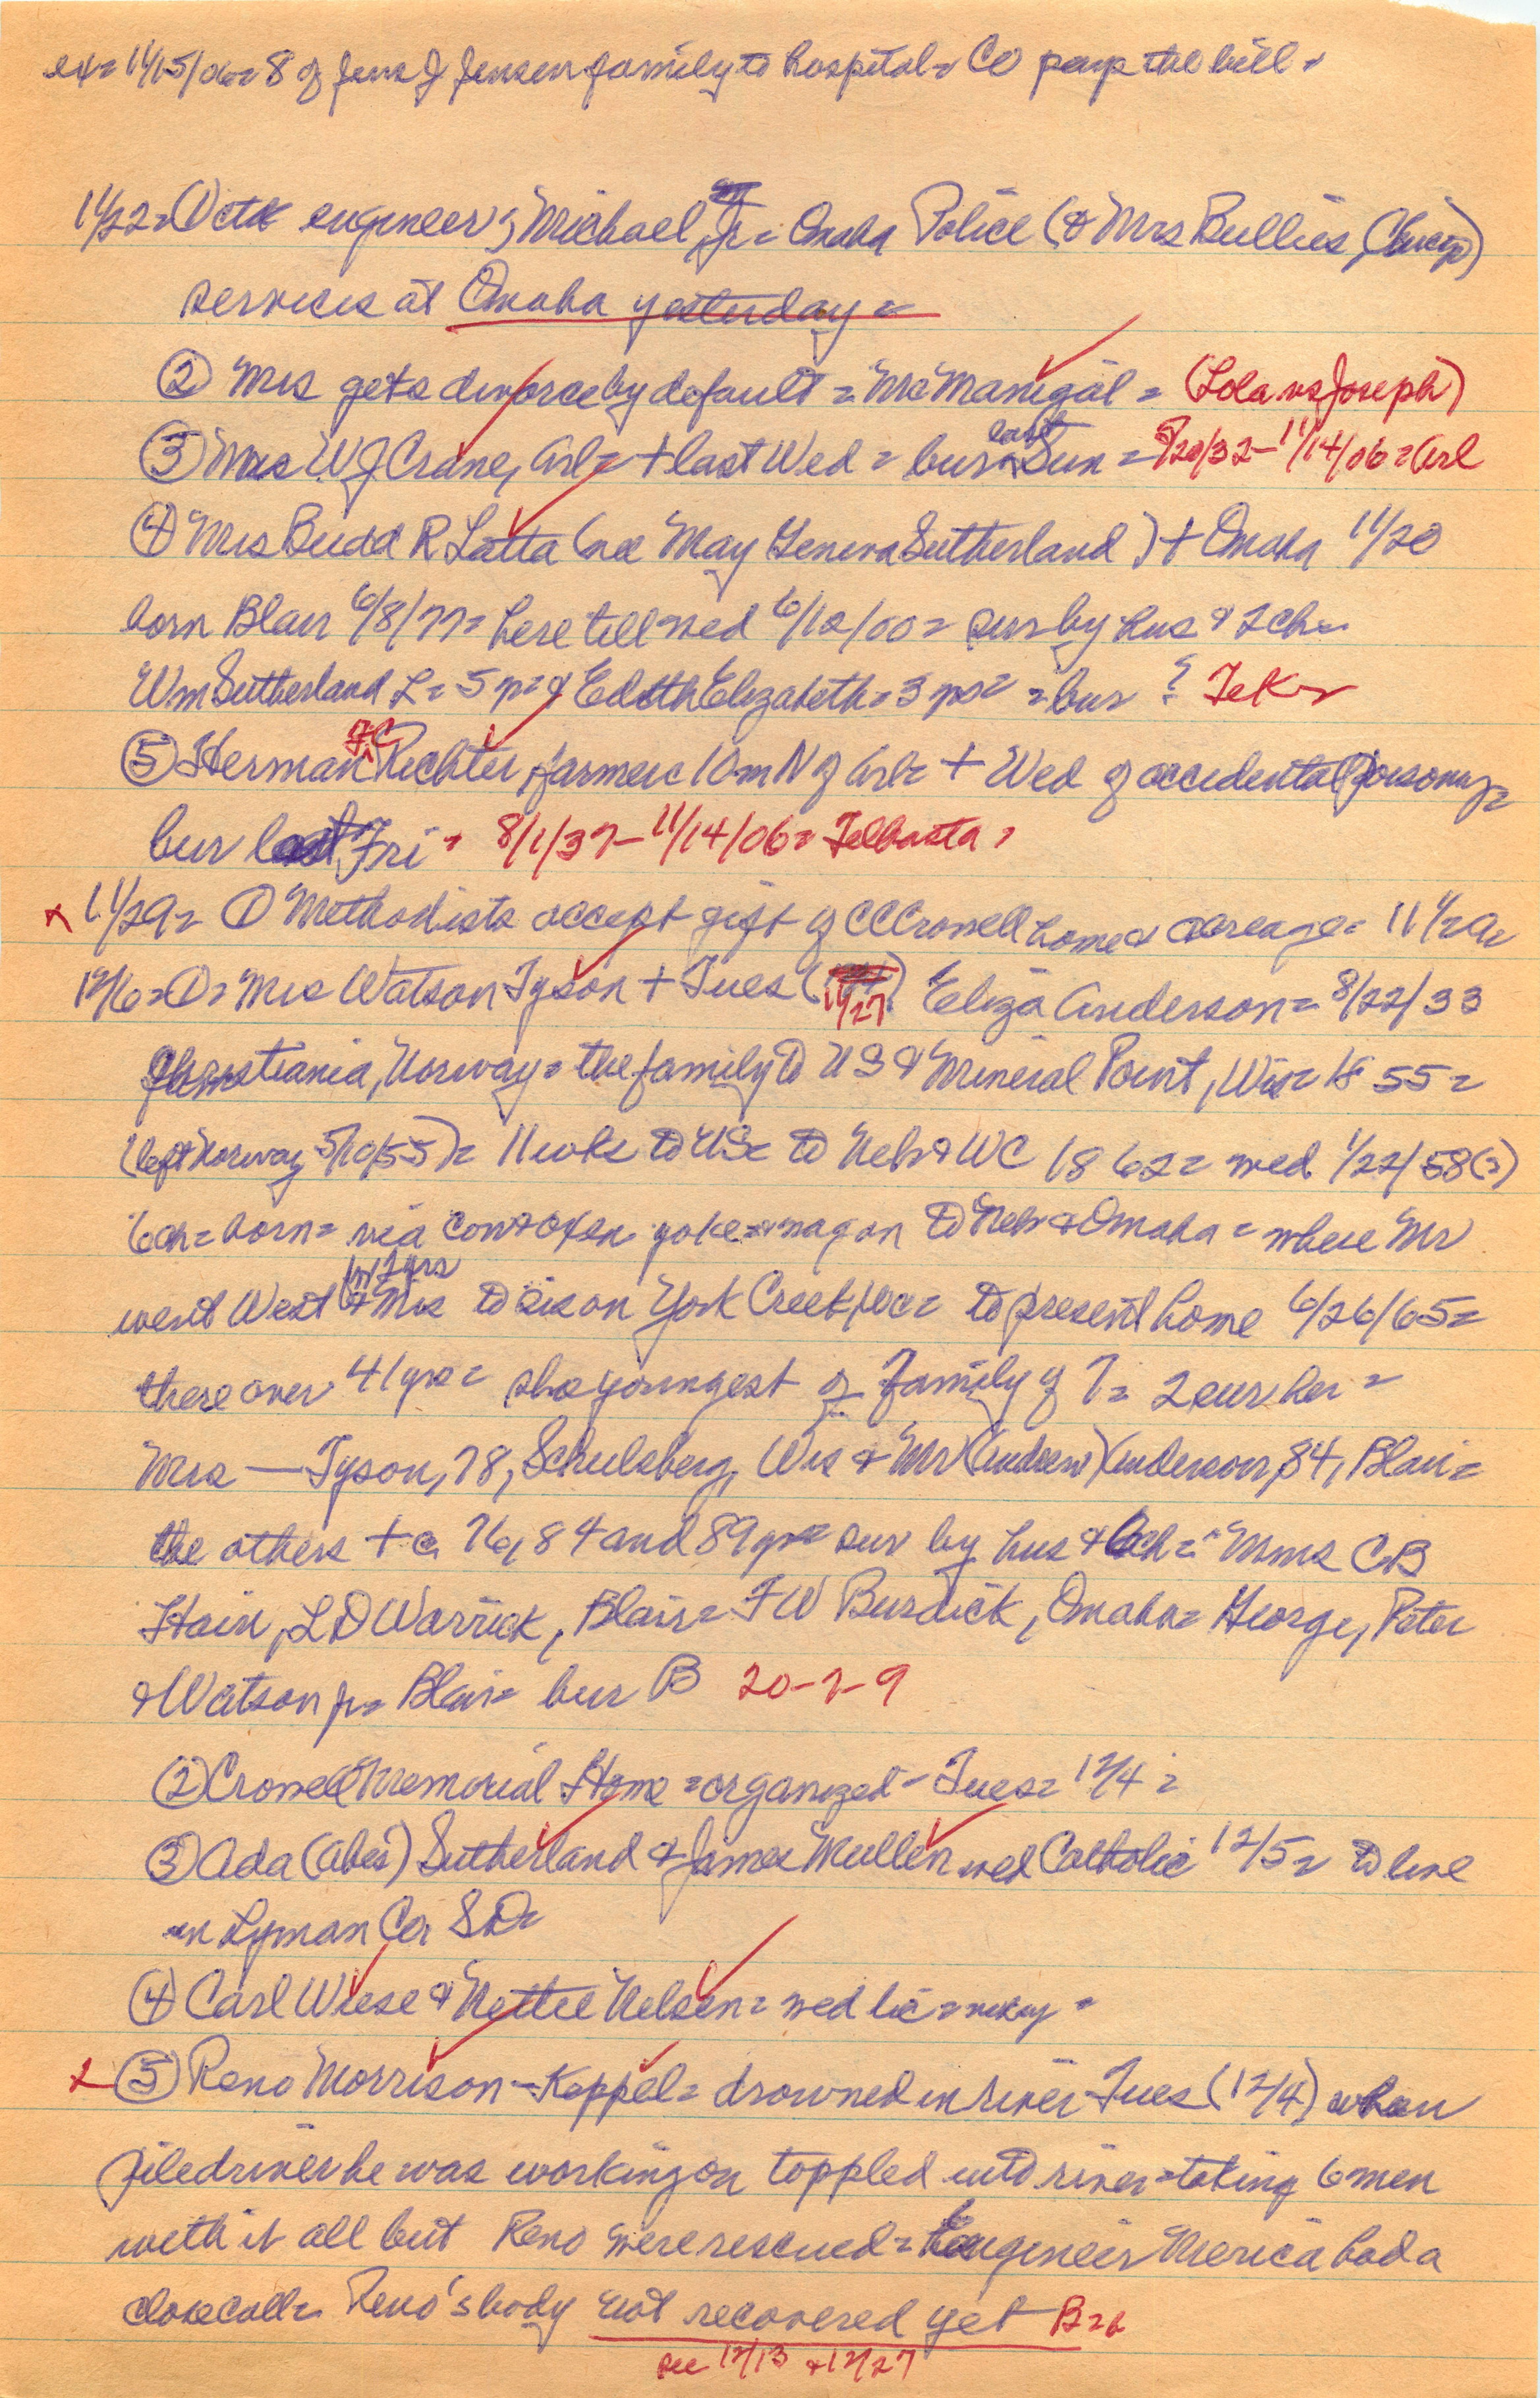 ex= 11/15/06= 8 of Jens J Jensen family to hospital= Co pays the bill=
11/22= engineer; Michael, Jr= Omaha Police (& Mrs Bullies, Chicago)
services at Omaha yesterday=
② Mrs gets divorce by default = McManigal = (Lola vs Joseph)
③ Mrs W J Crane, Arl= + last Wed = bur last Sun = 9/20/32-11/14/06= Arl
④ Mrs Budd R Latta (nee May Geneva Sutherland) + Omaha 11/20
born Blair 6/8/77= here till wed 6/12/00= sur by hus & 2 ch=
Wm Sutherland L= 5 & Edith Elizabeth= 3 = bur ? Tek=
⑤ Herman F C Richter, farmer 10 m N of Arl= + Wed of accidental poisoning=
bur last Fri = 8/1/37-11/14/06= Telbasta=
x 11/29= ① Methodists accept gift of C C Crowell home & acreage= 11 1/2 a=
12/6= ①= Mrs Watson Tyson + Tues (11/27) Eliza Anderson= 8/22/33
Christiania, Norway= the family to US & Mineral Point, Wis= 1855=
(left Norway 5/10/55)= 11 wks to US= to Neb & WC 1862= wed 1/22/58(?)
6 ch= born= via cow & oxen yoke= & wagon to Neb & Omaha= where Mr
went West (for 2 yrs) & Mrs to sis on York Creek, WC= to present home 6/26/65=
there over 41 yrs= she youngest of family of 7= 2 sur her=
Mrs — Tyson, 78, Schulsberg, Wis & Mr (Andrew) Anderson, 84, Blair=
the others + @ 76, 84 and 89 yrs= sur by hus & 6 ch= Mmes C B
Hain, L D Warrick, Blair= F W Burdick, Omaha= George, Peter
& Watson jr= Blair= bur B 20-2-9
② Crowell Memorial Home = organized - Tues= 12/4=
③ Ada (Abes) Sutherland & James Mullen wed Catholic 12/5= to live
in Lyman Co SD=
④ Carl Wiese & Nettie Nelsen= wed lic =
x ⑤ Reno Morrison - Keppel= drowned in river Tues (12/4) when
piledriver he was working on toppled into river= taking 6 men
with it all but Reno were rescued= Engineer Merica had a
close call= Reno's body not recovered yet B=
see 12/13 & 12/27